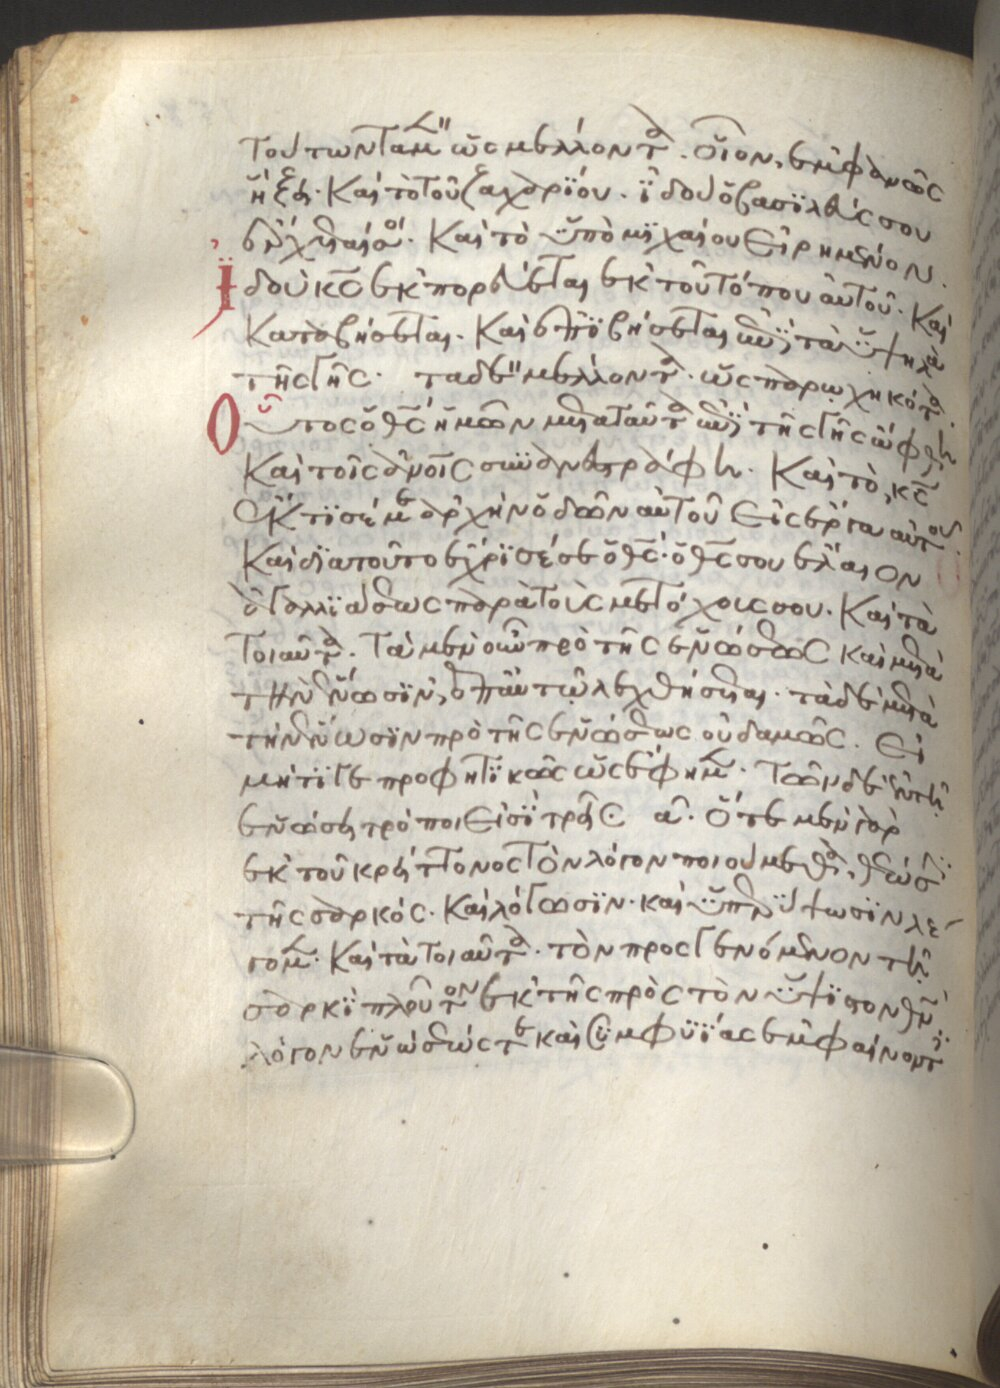 τούτων τὰ μ(ὲν) ὡς μέλλοντα. οἷον, ἐμφανῶς
ἥξει. Καὶ τὸ τοῦ ζαχαρίου. ἰδοὺ ὁ βασιλεύς σου
ἔρχεταί σοι. Καὶ τὸ ὑπὸ μιχαίου εἰρημένον.
Ἰδοὺ κ̅ς̅ ἐκπορεύεται ἐκ τοῦ τόπου αὐτοῦ. Καὶ
καταβήσεται. Καὶ ἐπιβήσεται ἐπὶ τὰ ὑψηλὰ
τῆς γῆς. τὰ δὲ μέλλοντα. ὡς παρῳχηκότα.
Οὗτος ὁ θ̅ς̅ ἡμῶν μετὰ ταῦτα ἐπὶ τῆς γῆς ὤφθη
Καὶ τοῖς ἀ̅ν̅ο̅ι̅ς̅ συνανεστράφη. Καὶ τὸ, κ̅ς̅
ἔκτισέ με ἀρχὴν ὁδῶν αὐτοῦ εἰς ἔργα αὐτοῦ.
Καὶ διατοῦτο ἔχρισέ σε ὁ θ̅ς̅. ὁ θ̅ς̅ σου ἔλαιον
ἀγαλλιάσεως παρὰ τοὺς μετόχους σου. Καὶ τὰ
τοιαῦτα. Τὰ μὲν οὖν πρὸ τῆς ἑνώσεως καὶ μετὰ
τὴν ἕνωσιν, ἐπ' αὐτῷ λεχθήσεται. τὰ δὲ μετὰ
τὴν ἕνωσιν πρὸ τῆς ἑνώσεως οὐδαμῶς. Εἰ
μήτι γε προφητικῶς ὡς ἔφημ(εν). Τῶν δὲ ἐν τῇ
ἑνώσει τρόποι εἰσὶ τρεῖς. α. Ὅτε μὲν γὰρ
ἐκ τοῦ κρείττονος τὸν λόγον ποιούμεθα, θέωσιν
τῆς σαρκός. Καὶ λόγωσιν. καὶ ὑπερύψωσιν λέ
γομ(εν). Καὶ τὰ τοιαῦτα. τὸν προσγενόμενον τῇ
σαρκὶ πλοῦτον ἐκ τῆς πρὸς τὸν ὕψιστον θ̅ν̅
λόγον ἑνώσεώς τε καὶ συμφυΐας ἐμφαίνοντ(ες)